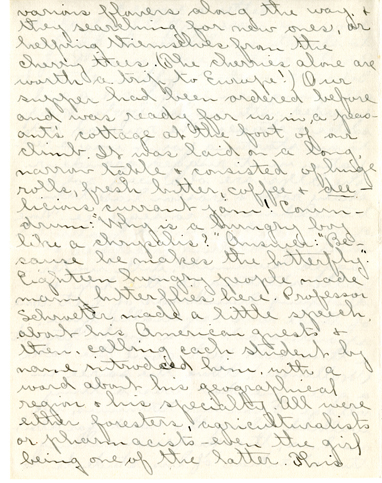 various flowers along the way, &
they searching for new ones, or
helping themselves from the
cherry trees. (The cherries alone are
worth a trip to Europe!) Our
supper had been ordered before
and was ready for us in a peas-
ant's cottage at the foot of our
climb. It was laid on a long,
narrow table & consisted of huge
rolls, fresh butter, coffee & del-
licious currant jam! Conun-
drum: "Why is a hungry boy
like a chrysalis?" Answer: "Be-
cause he makes the butterfly."
Eighteen hungry people made
many butterflies here. Professor
Schroetter made a little speech
about his American guests &
then, calling each student by
name introduced him, with a
word about his geographical
region & his specialty. All were
either foresters, agriculturalists
or pharmacists - even the girl
being one of the latter. This